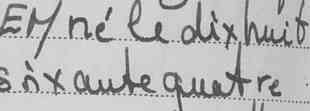 EM né le dix huit
soixante quatre